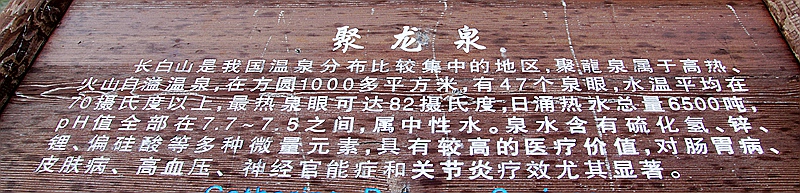 聚龙泉
长白山是我国温泉分布比较集中的地区,聚龍泉属于高热、
火山自溢温泉,在方圆1000多平方米,有47个泉眼,水温平均在
70摄氏度以上,最热泉眼可达82摄氏度,日涌热水总量6500吨,
pH值全部在7.7~7.5之间,属中性水。泉水含有硫化氢、锌、
锂、偏硅酸等多种微量元素,具有较高的医疗价值,对肠胃病、
皮肤病、高血压、神经官能症和关节炎疗效尤其显著。